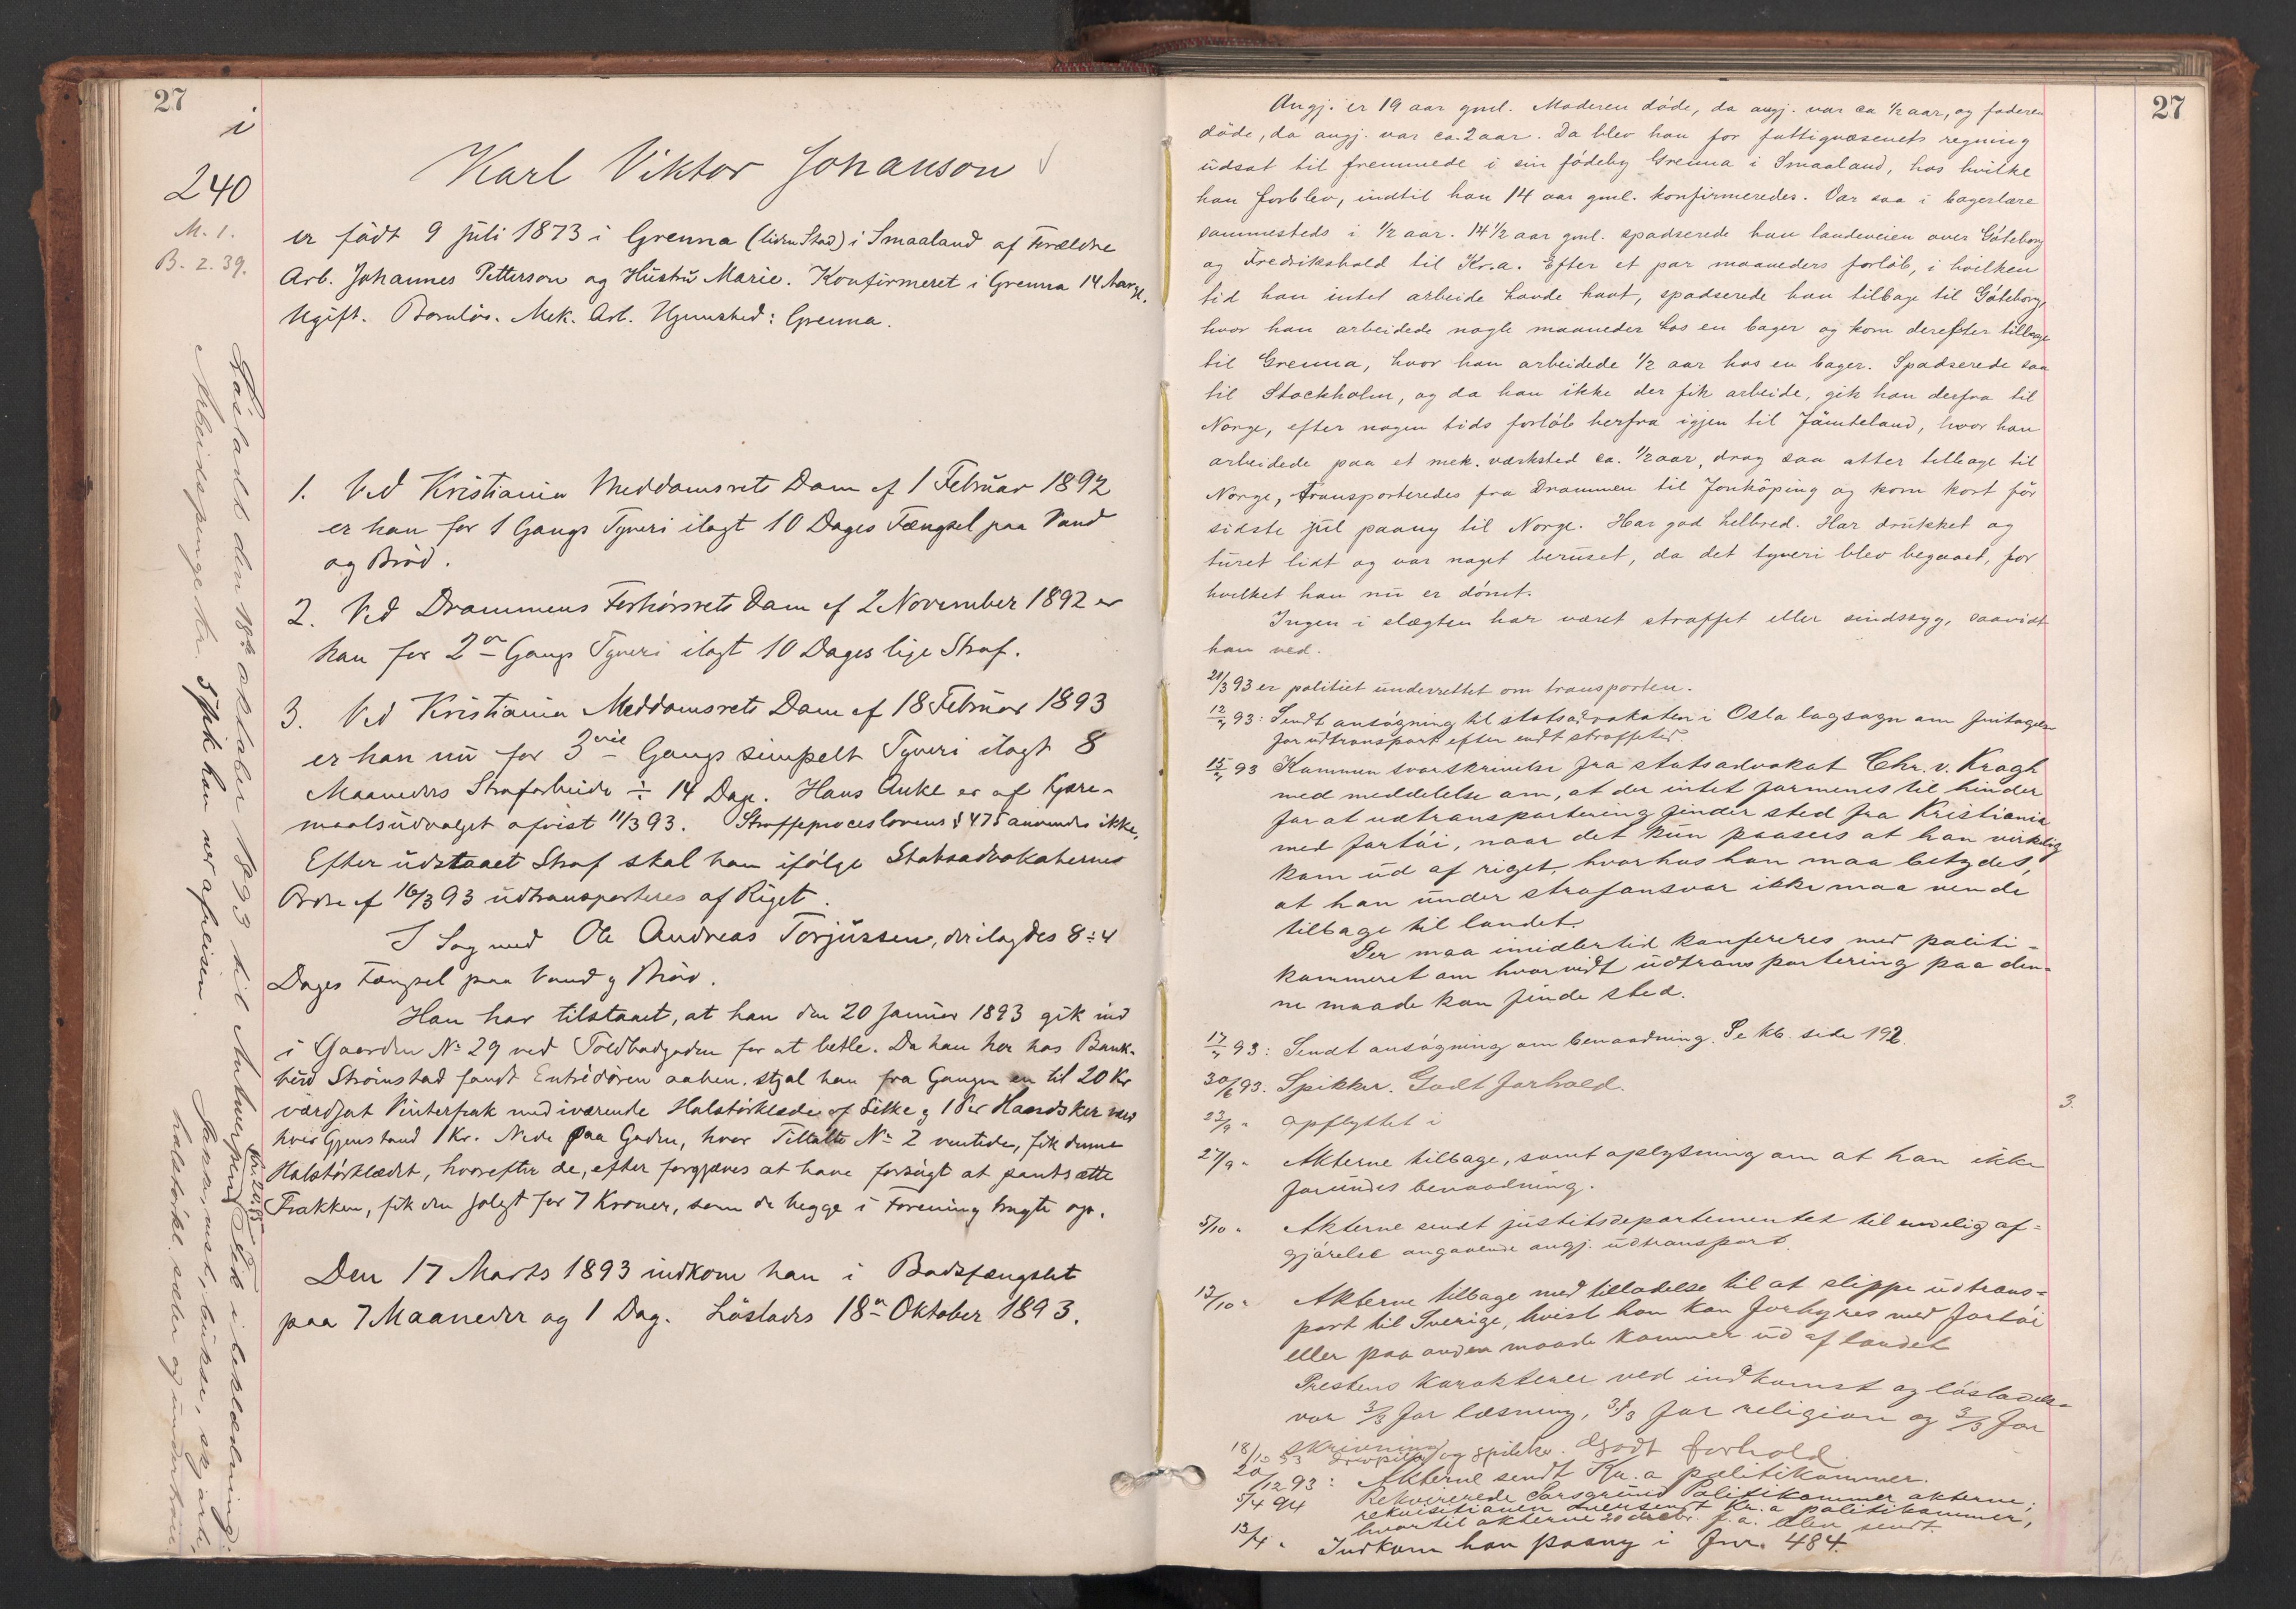 27
i
240
M. 1.
B. 2. 39.
Karl Viktor Johanson
er födt 9 juli 1873 i Grenna (liden Stad) i Smaaland af Forældre
Arb. Johannes Petterson og Hustru Marie. Konfirmeret i Grenna 14 Aar gl.
Ugift. Barnløs. Mek. Arb. Hjemsted: Grenna.
1. Ved Kristiania Meddomsrets Dom af 1 Februar 1892
er han for 1 Gangs Tyveri ilagt 10 Dages Fængsel paa Vand
og Bröd.
2. Ved Drammens Forhörsrets Dom af 2 November 1892 er
han for 2en Gangs Tyveri ilagt 10 Dages lige Straf.
3. Ved Kristiania Meddomsrets Dom af 18 Februar 1893
er han nu for 3die Gangs simpelt Tyveri ilagt 8
Maaneders Strafarbeide ÷ 14 Dage. Hans Anke er af Kjære-
maalsudvalget afvist 11/3 93. Straffeproceslovens § 475 anvendes ikke.
Efter udstaaet Straf skal han ifölge Statsadvokaternes
Ordre af 16/3 93 udtransporteres af Riget.
I Sag med Ole Andreas Torjussen, der ilagdes 8 ÷ 4
Dages Fængsel paa Vand og Bröd.
Han har tilstaaet, at han den 20 Januar 1893 gik ind
i Gaarden No 29 ved Toldbodgaden for at betle. Da han her hos Bank-
bud Strömstad fandt Entrédören aaben, stjal han fra Gangen en til 20 Kr
værdsat Vinterfrak med iværende Halstörklæde af Silke og 1 Par Handsker med
hver Gjenstand 1 Kr. Nede paa Gaden, hvor Tiltalte No 2 ventede, fik denne
Halstörklædet, hvorefter de, efter forgjæves at have forsögt at pantsætte
Frakken, fik den solgt for 7 Kroner, som de begge i Forening brugte op.
Den 17 Marts 1893 indkom han i Bodsfængslet
paa 7 Maaneder og 1 Dag. Löslades 18de Oktober 1893.
Lösladt den 18de oktober 1893 til Antwerpen. Fik i beklædning:
Arbeidspenge kr. 5 fik han ved afreisen.
halstörkl. sæler og
27
Angj. er 19 aar gml. Moderen döde, da angj. var ca 1/2 aar, og faderen
döde, da angj. var ca. 2 aar. Da blev han for fattigvæsenets regning
udsat til fremmede i sin födeby Grenna i Smaaland, hos hvilke
han forblev, indtil han 14 aar gml. konfirmeredes. Var saa i bagerlære
sammesteds i 1/2 aar. 14 1/2 aar gml. spadserede han landeveien over Göteborg
og Fredrikshald til Kr.a. Efter et par maaneders forlöb, i hvilken
tid han intet arbeide havde havt, spadserede han tilbage til Göteborg,
hvor han arbeidede nogle maaneder hos en bager og kom derefter tilbage
til Grenna, hvor han arbeidede 1/2 aar hos en bager. Spadserede saa
til Stockholm, og da han ikke der fik arbeide, gik han derfra til
Norge, efter nogen tids forlöb herfra igjen til Jämteland, hvor han
arbeidede paa et mek. værksted ca. 1/2 aar, drog saa atter tilbage til
Norge, transporteredes fra Drammen til Jonköping og kom kort för
sidste jul paany til Norge. Har god helbred. Har drukket og
turet lidt og var noget beruset, da det tyveri blev begaaet, for
hvilket han nu er dömt.
Ingen i slægten har været straffet eller sindssyg, saavidt
han ved.
21/3 93 er politiet underrettet om transporten.
12/4 93: Sendt ansögning til statsadvokaten i Oslo lagsogn om fritagelse
for udtransport efter endt straffetid.
15/4 93 Kommen svarskrivelse fra statsadvokat Chr. v. Krogh
med meddelelse om, at der intet formenes til hinder
for at udtransportering finder sted fra Kristiania
med fartöi, naar det kun paasees at han virkelig
kom ud af riget, hvorhos han maa betydes,
at han under strafansvar ikke maa vende
tilbage til landet.
Der maa imidlertid konfereres med politi-
kammeret om hvorvidt udtransportering paa den-
ne maade kan finde sted.
17/4 93: Sendt ansögning om benaadning. Se kb. side 192.
30/6 93. Spikker. Godt forhold.
23/9 " opflyttet i
3.
27/9 " Akterne tilbage, samt oplysning om at han ikke
forundes benaadning.
5/10 " Akterne sendt justitsdepartementet til endelig af-
gjörelse angaaende angj. udtransport.
13/10 " Akterne tilbage med tilladelse til at slippe udtrans-
port til Sverige, hvist han kan forhyres med fartöi
eller paa anden maade kommer ud af landet
Prestens karakterer ved indkomst og lösladelse
var 3/3 for læsning, 3/3 for religion og 3/3 for
skrivning
18/10 93 og spikke. Godt forhold
20/12 93: Akterne sendt Kr.a politikammer.
5/4 94 Rekvirerede Porsgrund Politikammer akterne;
rekvisitionen oversendt Kr.a politikammer,
hvortil akterne 20 decbr. f.a. blev sendt.
13/4 " Indkom han paany i fnr. 484.